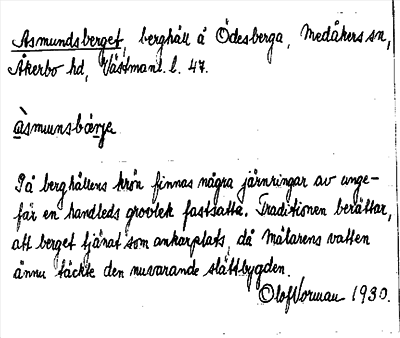 Asmundsberget, berghäll å Ödesberga, Medåkers sn,
Åkerbo hd, Västmanl. l. 47.
àsmuunsbærje
På berghällens krön finnas några järnringar av unge-
fär en handleds grovlek fastsatta. Traditionen berättar,
att berget tjänat som ankarplats, då Mälarens vatten
ännu täckte den nuvarande slättbygden.
Olof Norman 1930.